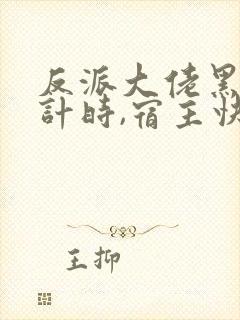 反派大佬黑
計時,宿主快
王抑